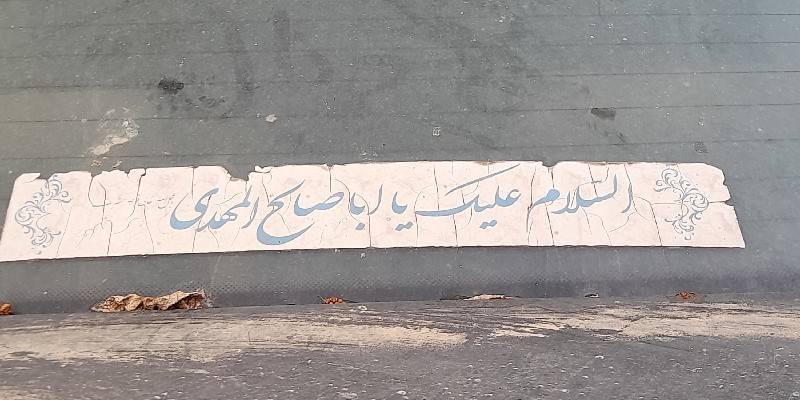 السلام علیک یا اباصالح المهدی